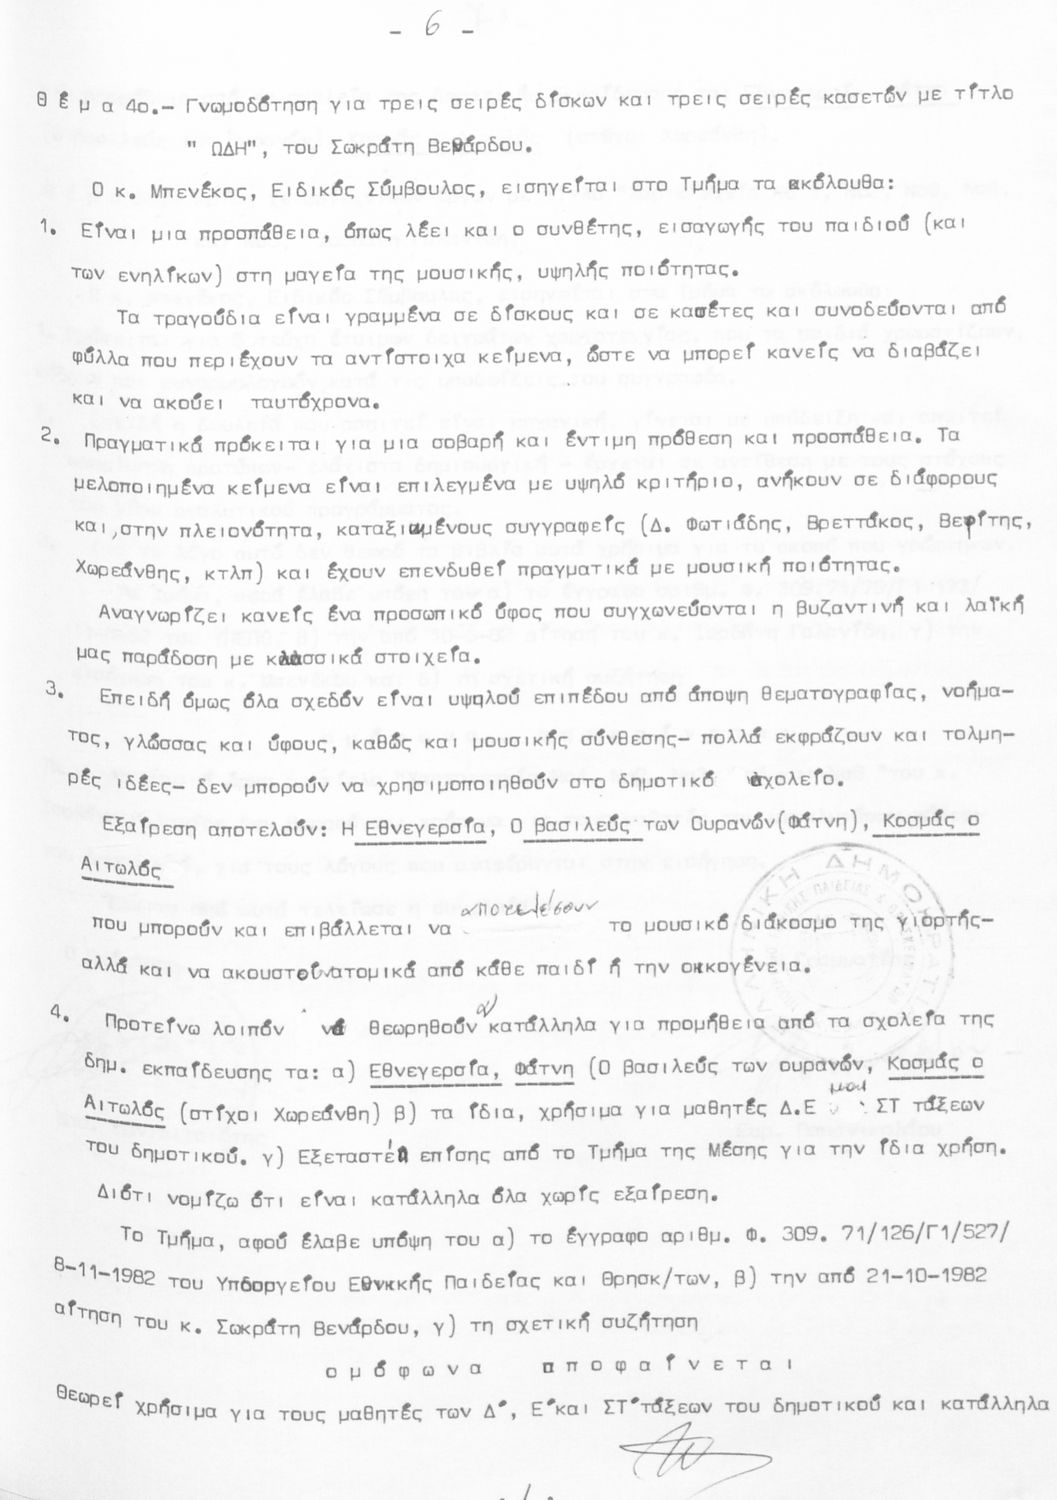 - 6 -
Θ έ μ α 4ο.- Γνωμοδότηση για τρεις σειρές δίσκων και τρεις σειρές κασετών με τίτλο
" ΩΔΗ", του Σωκράτη Βενάρδου.
Ο κ. Μπενέκος, Ειδικός Σύμβουλος, εισηγείται στο Τμήμα τα ακόλουθα:
1. Είναι μια προσπάθεια, όπως λέει και ο συνθέτης, εισαγωγής του παιδιού (και
των ενηλίκων) στη μαγεία της μουσικής, υψηλής ποιότητας.
Τα τραγούδια είναι γραμμένα σε δίσκους και σε κασέτες και συνοδεύονται από
φύλλα που περιέχουν τα αντίστοιχα κείμενα, ώστε να μπορεί κανείς να διαβάζει
και να ακούει ταυτόχρονα.
2. Πραγματικά πρόκειται για μια σοβαρή και έντιμη πρόθεση και προσπάθεια. Τα
μελοποιημένα κείμενα είναι επιλεγμένα με υψηλό κριτήριο, ανήκουν σε διάφορους
και,στην πλειονότητα, καταξιωμένους συγγραφείς (Δ. Φωτιάδης, Βρεττάκος, Βερίτης,
Χωρεάνθης, κτλπ) και έχουν επενδυθεί πραγματικά με μουσική ποιότητας.
Αναγνωρίζει κανείς ένα προσωπικό ύφος που συγχωνεύονται η βυζαντινή και λαϊκή
μας παράδοση με κλασσικά στοιχεία.
3. Επειδή όμως όλα σχεδόν είναι υψηλού επιπέδου από άποψη θεματογραφίας, νοήμα-
τος, γλώσσας και ύφους, καθώς και μουσικής σύνθεσης- πολλά εκφράζουν και τολμη-
ρές ιδέες- δεν μπορούν να χρησιμοποιηθούν στο δημοτικό σχολείο.
Εξαίρεση αποτελούν: Η Εθνεγερσία, Ο βασιλεύς των Ουρανών(Φάτνη), Κοσμάς ο
Αιτωλός
που μπορούν και επιβάλλεται να αποτελέσουν το μουσικό διάκοσμο της γιορτής-
αλλά και να ακουστούν ατομικά από κάθε παιδί ή την οικογένεια.
4. Προτείνω λοιπόν να θεωρηθούν α) κατάλληλα για προμήθεια από τα σχολεία της
δημ. εκπαίδευσης τα: α) Εθνεγερσία, Φάτνη (Ο βασιλεύς των ουρανών, Κοσμάς ο
Αιτωλός (στίχοι Χωρεάνθη) β) τα ίδια, χρήσιμα για μαθητές Δ.Ε και ΣΤ τάξεων
του δημοτικού. γ) Εξεταστέα επίσης από το Τμήμα της Μέσης για την ίδια χρήση.
Διότι νομίζω ότι είναι κατάλληλα όλα χωρίς εξαίρεση.
Το Τμήμα, αφού έλαβε υπόψη του α) το έγγραφο αριθμ. Φ. 309. 71/126/Γ1/527/
8-11-1982 του Υπουργείου Εθνικής Παιδείας και Θρησκ/των, β) την από 21-10-1982
αίτηση του κ. Σωκράτη Βενάρδου, γ) τη σχετική συζήτηση
ο μ ό φ ω ν α α π ο φ α ί ν ε τ α ι
Θεωρεί χρήσιμα για τους μαθητές των Δ', Ε'και ΣΤ'τάξεων του δημοτικού και κατάλληλα
./.